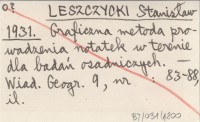 O.Z.
LESZCZYCKI Stanisław
1931. Graficzna metoda pro-
wadzenia notatek w terenie
dla badań osadniczych. —
Wiad. Geogr. 9, nr : 83-88,
il.
B7/031/1800